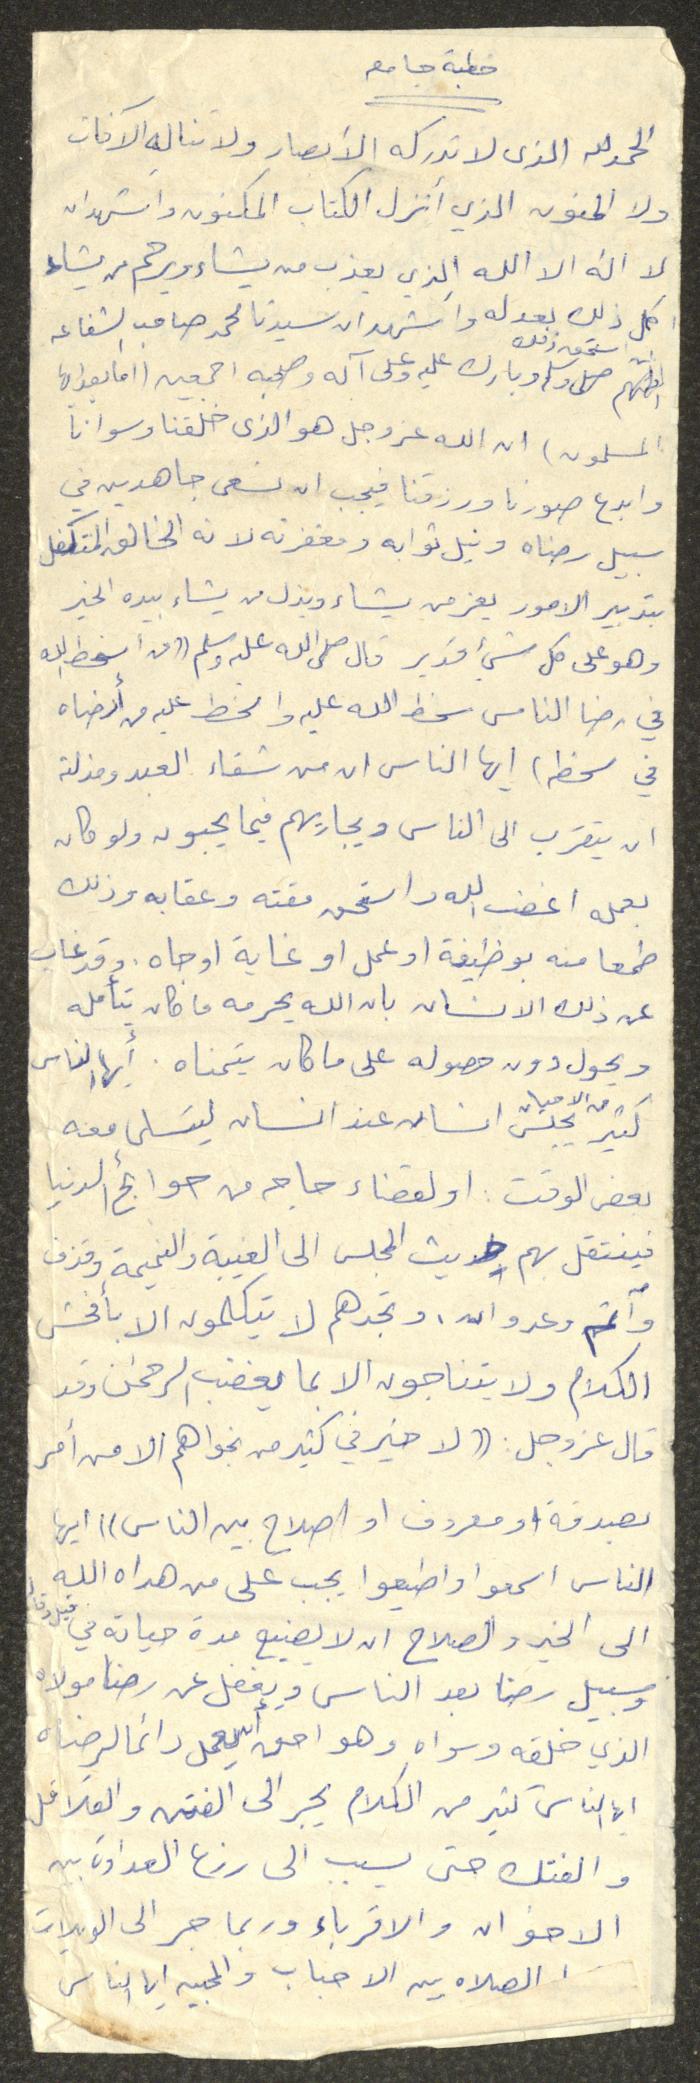 خطبة جامعه
الحمد لله الذى لا تدركه الأبصار ولا تناله الآفات
ولا المنون الذي أنزل الكتاب المكنون واشهد ان
لا اله الا الله الذي يعذب من يشاء ويرحم من يشاء
كل ذلك بعدله وأشهد ان سيدنا محمد صاحب الشفاعه
استحق ذلك
اللهم صل وسلم وبارك عليه وعلى آله وصحبه اجمعين (اما بعد ايها
المسلمون) ان الله عز وجل هو الذى خلقنا وسوانا
وابدع صورنا ورزقنا فيجب ان نسعى جاهدين في
سبيل رضاه ونيل ثوابه ومغفرته لانه الخالق المتكفل
بتدبير الامور يعز من يشاء ويذل من يشاء بيده الخير
وهو على كل شيء قدير قال صلى الله عليه وسلم ((من أسخط الله
في رضا الناس سخط الله عليه واسخط عليه من أرضاه
في سخطه) ايها الناس ان من شقاء العبد ومذلته
ان يتقرب الى الناس ويجاريهم فيما يحبون ولو كان
بعمله اغضب الله واستحق مقته وعقابه وذلك
طمعا منه بوظيفة او عمل او غاية او جاه. وقد غاب
عن ذلك الانسان بان الله يحرمه ما كان يتأمله
ويحول دون حصوله على ما كان يتمناه. أيها الناس
من الاحيان
كثير يجلس انسان عند انسان ليتسلى معه
بعض الوقت. او لقضاء حاجه من حوائج الدنيا
فينتقل بهم حديث المجلس الى الغيبة والنميمة وقذف
وأثم وعدوان. وتجدهم لا يتكلمون الا بأفحش
الكلام ولا يتناجون الا بما يغضب الرحمن وقد
قال عز وجل: ((لا خير في كثير من نجواهم الا من أمر
بصدقة او معروف او اصلاح بين الناس)) ايها
الناس اسمعوا واطيعوا يجب على من هداه الله
الى الخير والصلاح ان لا يضيع مدة حياته في قيل وقال
وسبيل رضا بعد الناس ويغفل عن رضا مولاه
الذي خلقه وسواه وهو احق أن يعمل دائما لرضاه
ايها الناس كثير من الكلام يجر الى الفتن والقلاقل
والفتك حتى يسبب الى زرع العداوة بين
الاخوان والاقرباء وربما جر الى الويلات
الصلاه بين الاحباب والمحبين ايها الناس